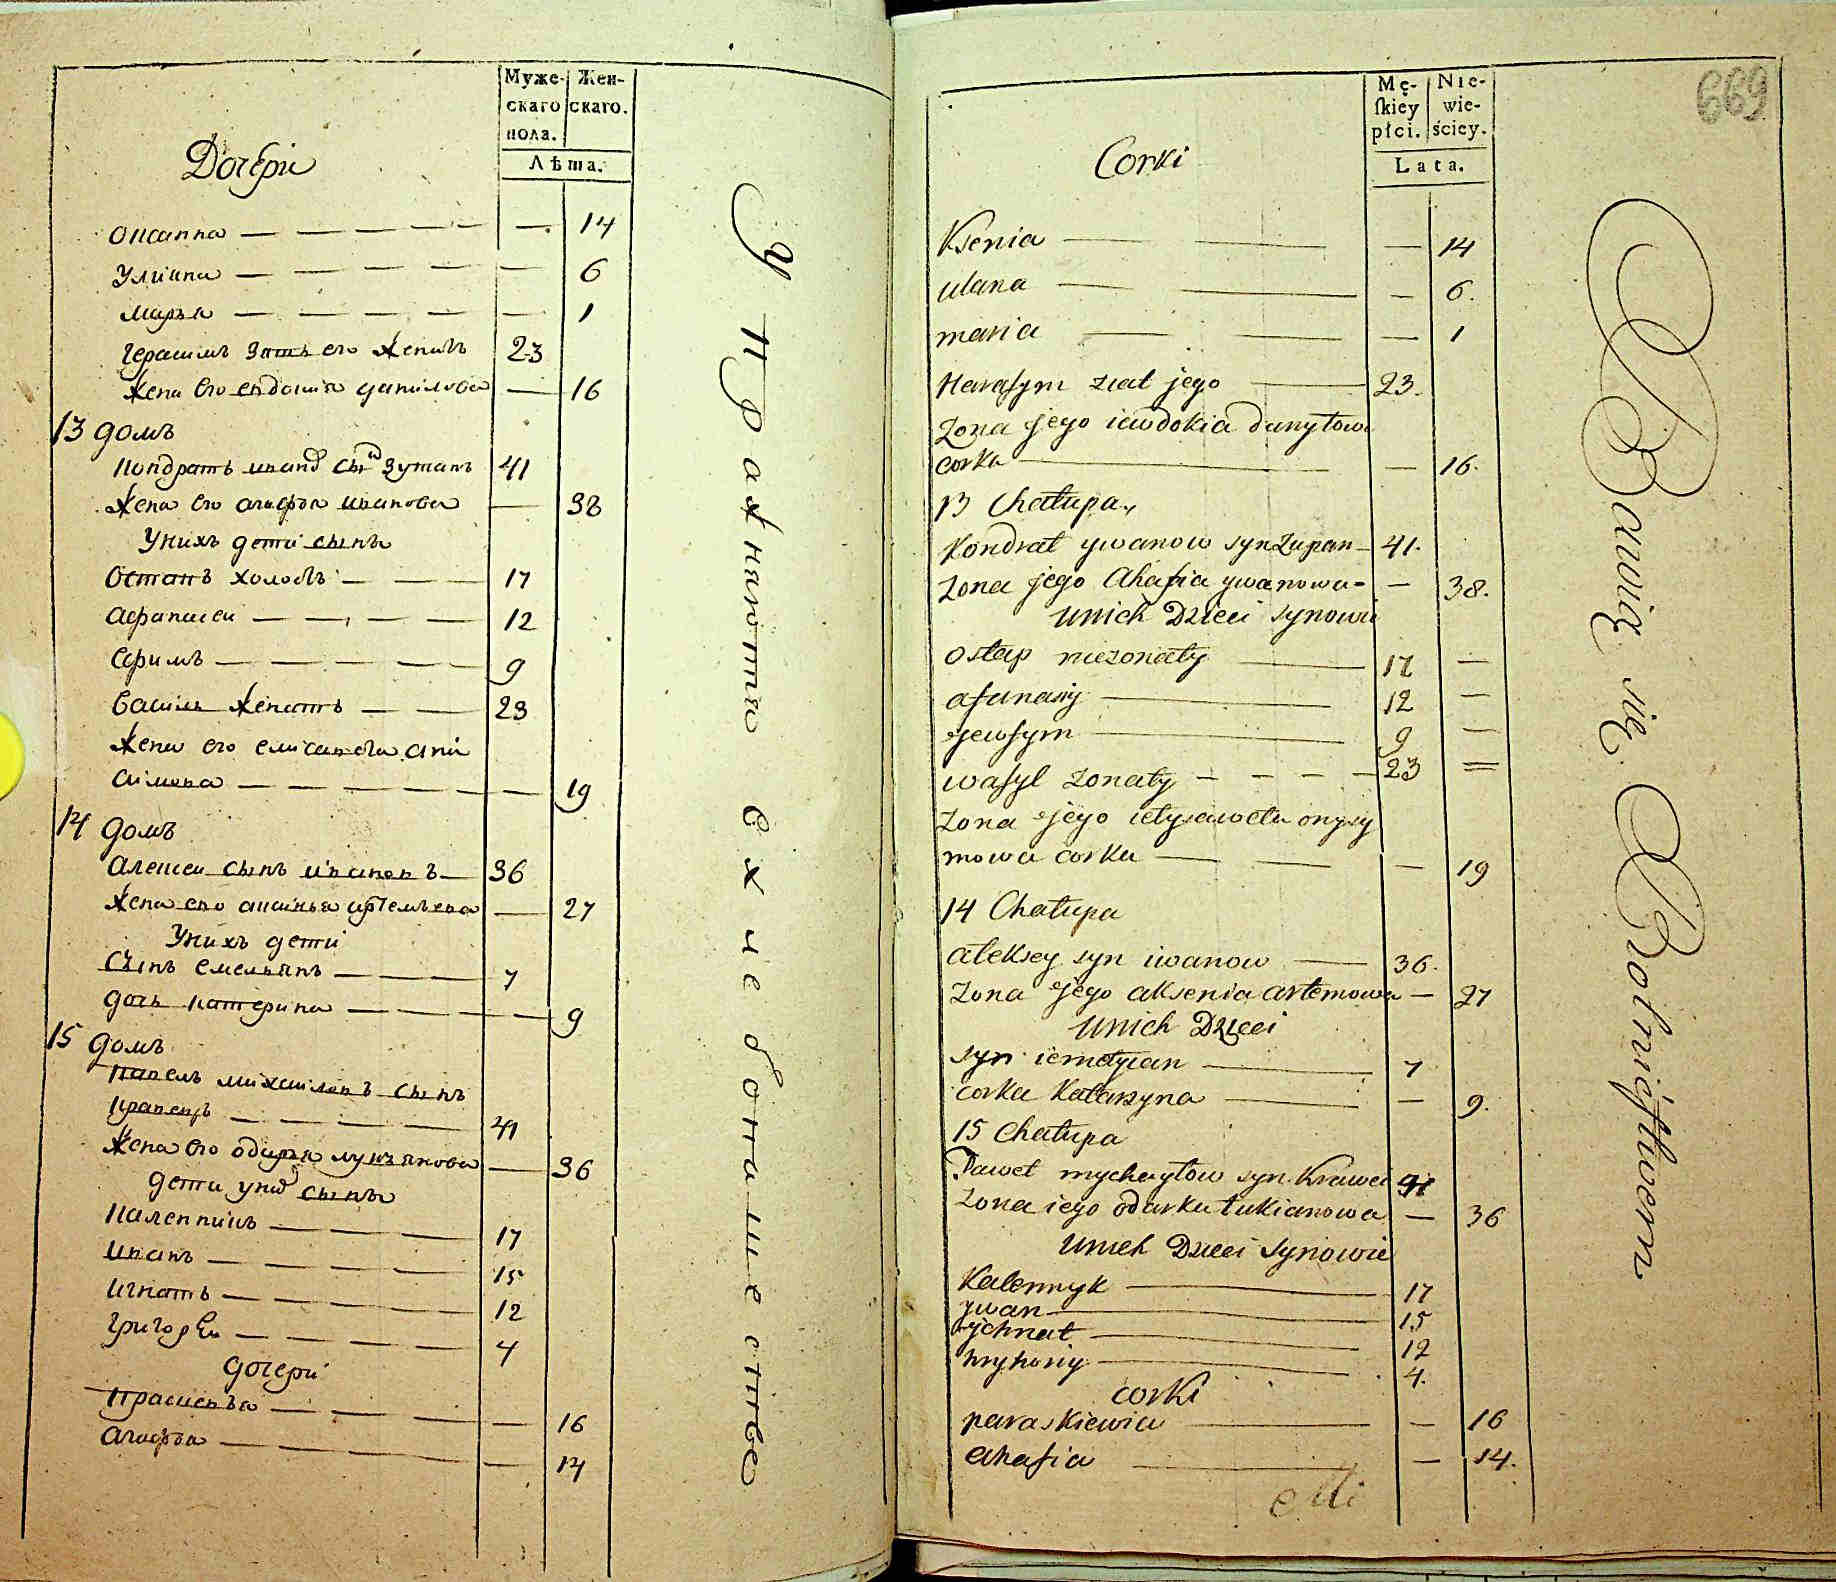 Муже- Жен-
скаго скаго.
пола.
Лѣта.
Дочери
Оксанна — 14
Улиана — 6
Марья — 1
Герасимъ зять его женатъ 23
Жена его евдокия данилова — 16
13 домъ
Кондратъ ивановъ сынъ зупанъ 41
Жена его агафья иванова — 38
У нихъ дети сыны
Остапъ холостъ — 17
Афанасеи — 12
Ефимъ — 9
Василь женатъ — 23
Жена его елисавета ани
симова — 19
14 домъ
Алексеи сынъ ивановъ — 36
Жена его аксинья артемьева — 27
У нихъ дети
Сынъ емельянъ — 7
дочь катерина — 9
15 домъ
Павелъ михаиловъ сынъ
кравецъ — 41
Жена его одарья лукъянова — 36
дети у нихъ сыны
Каленникъ — 17
Иванъ — 15
Игнатъ — 12
Григореи — 4
дочери
Прасковья — 16
Агафья — 14
Упражняютца в хлебопашестве
669
Mę- Nie-
ſkiey wie-
płci. ściey.
Lata.
Corki
Ksenia — 14
ulana — 6.
maria — 1
Harasym ziat jego — 23.
Zona jego iewdokia danyłowa
corka — 16.
13 Chałupa
Kondrat ywanow syn Zupan — 41.
Zona jego Ahafia ywanowa — 38.
Unich Dzieci synowie
Ostap niezonaty — 17 —
afanasiy — 12 —
Jewfym — 9 —
wasyl zonaty — 23 =
Zona jego ielysaweta onysy
mowa corka — 19
14 Chałupa
Aleksey syn iwanow — 36.
Zona jego aksenia artemowa — 27
Unich Dzieci
syn iemelyian — 7
corka Katarzyna — 9.
15 Chałupa
Paweł mychayłow syn Krawec 41
Zona iego odarka łukianowa — 36
Unich Dzieci Synowie
Kalennyk — 17
ywan — 15
yhnat — 12
hryhoriy — 4.
corki
paraskiewia — 16
ahafia — 14.
Bawią się Rolnictwem